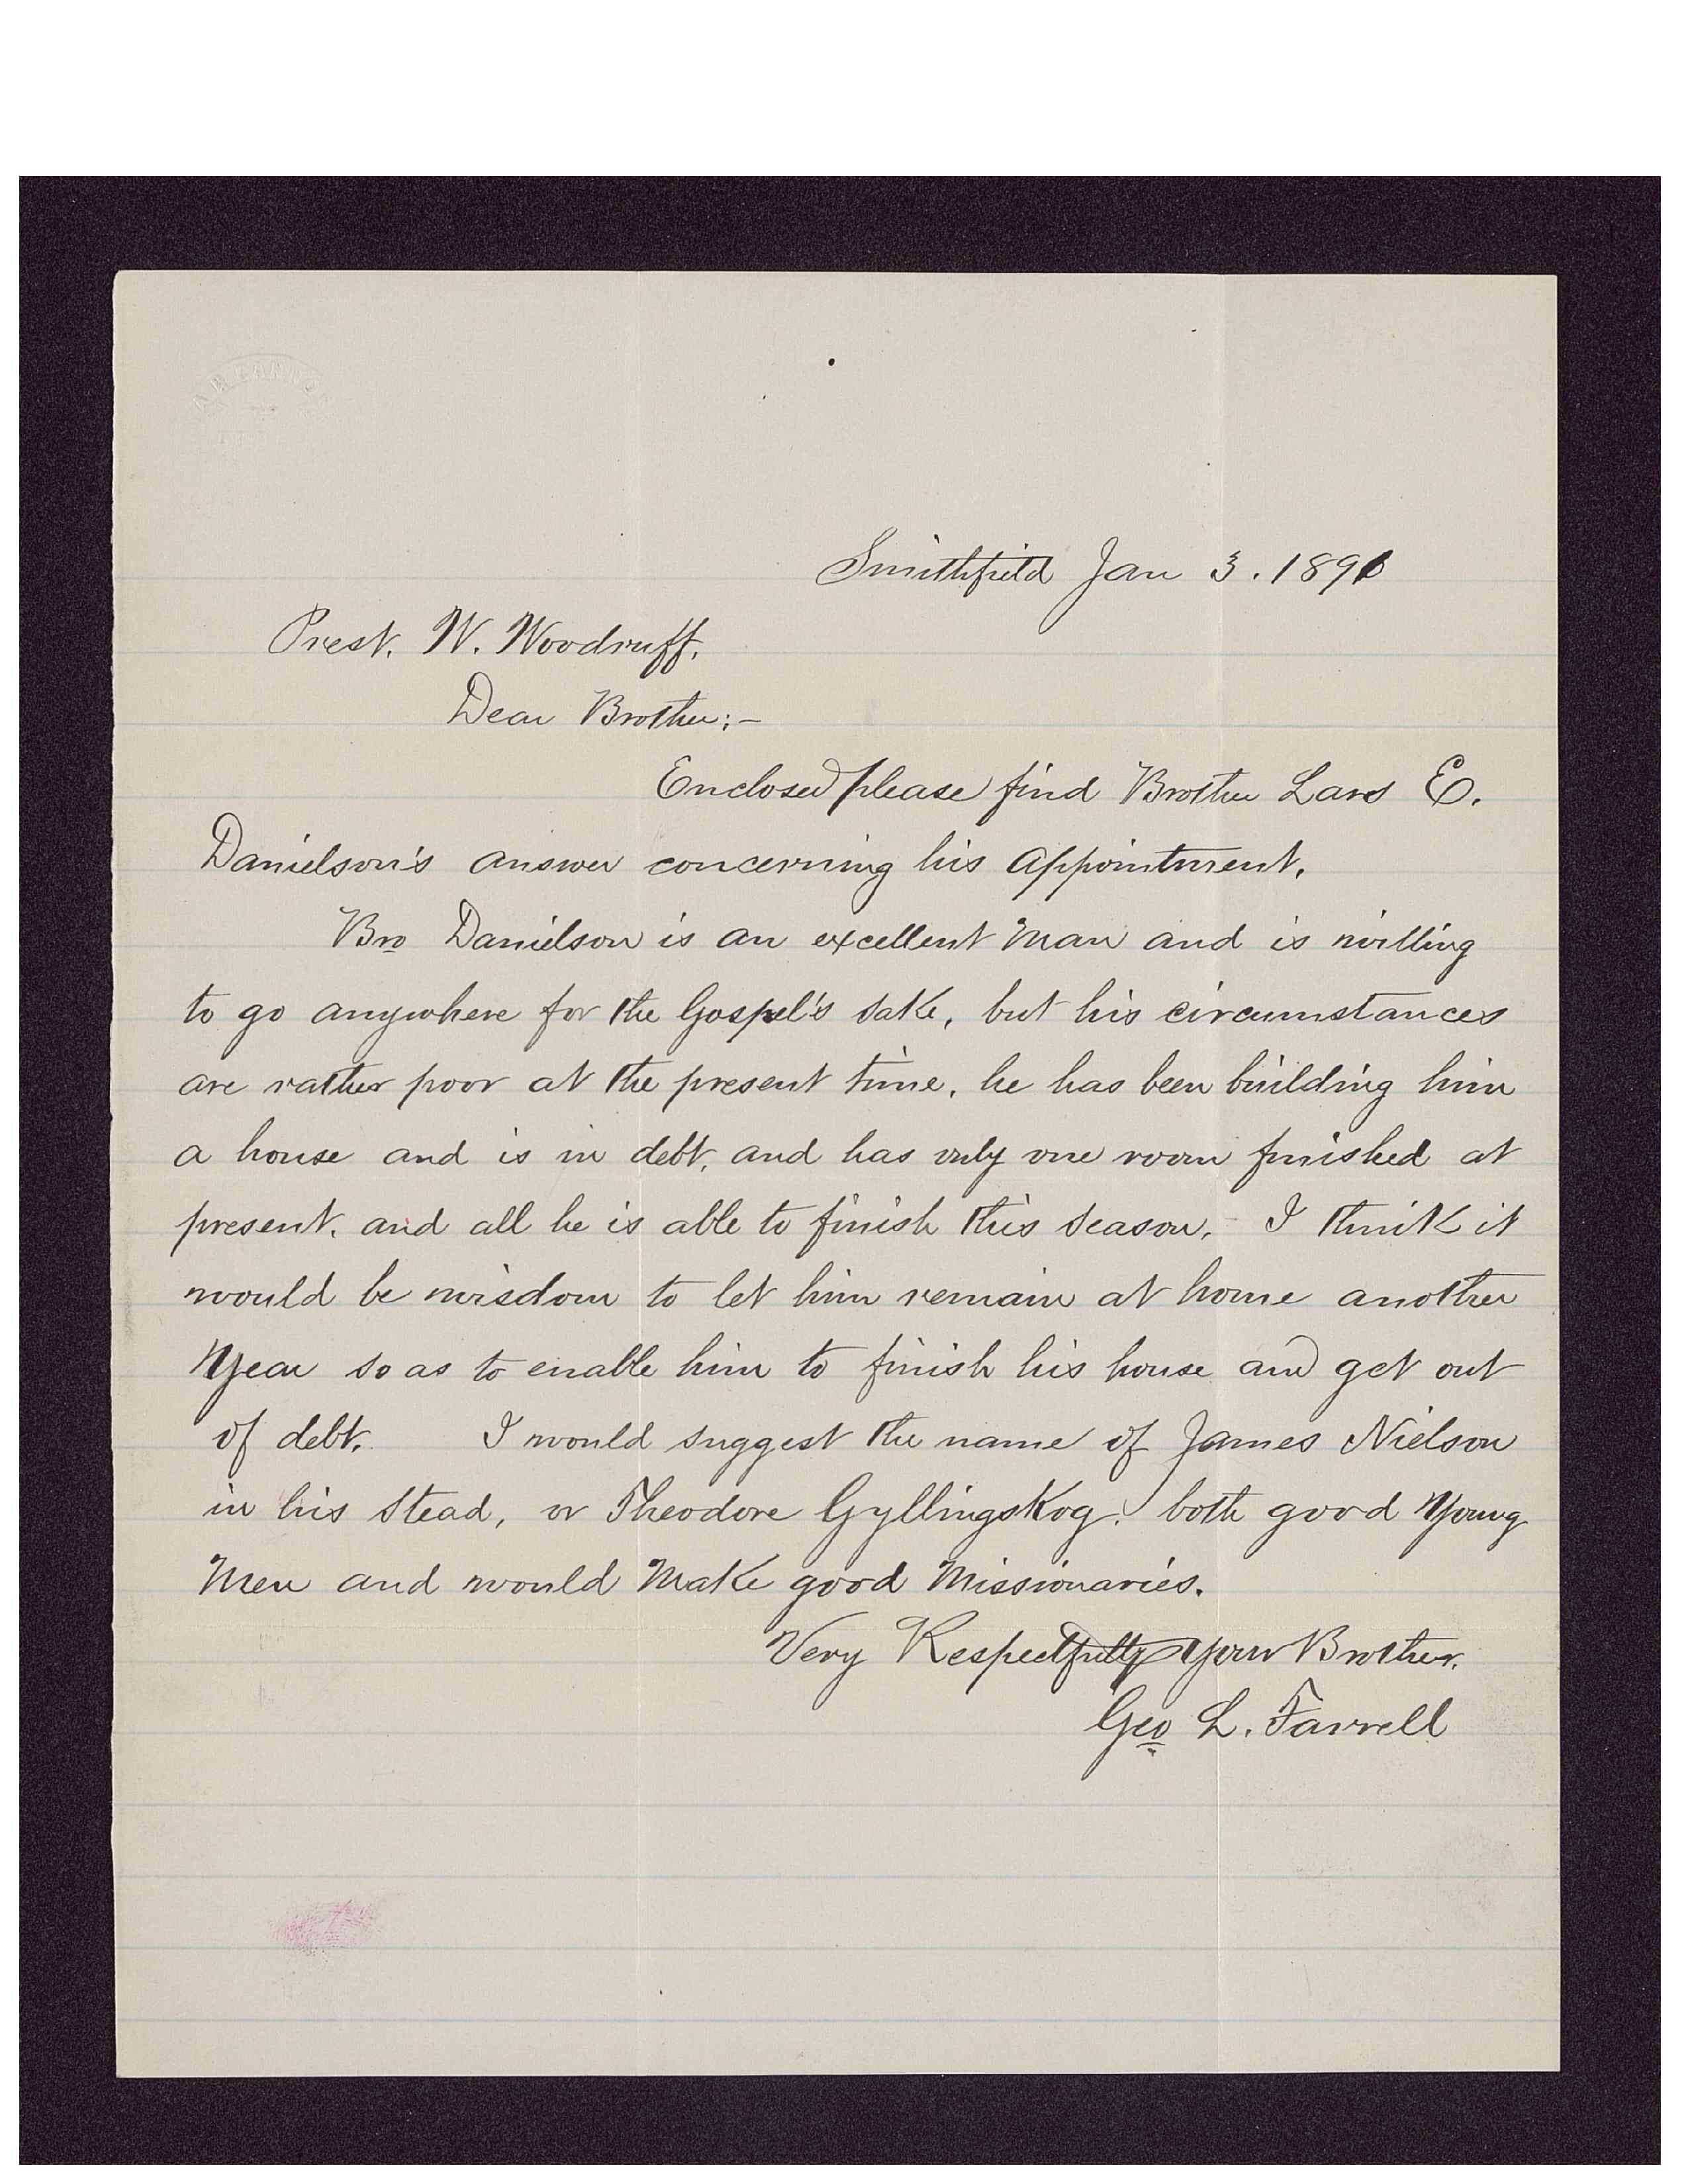 Smithfield Jan 3. 1891
Prest. W. Woodruff.
Dear Brother:-
Enclosed please find Brother Lars E.
Danielson's answer concerning his appointment.
Bro Danielson is an excellent Man and is willing
to go anywhere for the Gospel's sake, but his circumstances
are rather poor at the present time, he has been building him
a house and is in debt, and has only one room finished at
present. and all he is able to finish this season. I think it
would be wisdom to let him remain at home another
Year so as to enable him to finish his house and get out
of debt. I would suggest the name of James Nielson
in his stead, or Theodore Gyllingskog. both good Young
Men and would Make good Missionaries.
Very Respectfully Your Brother.
Geo L. Farrell